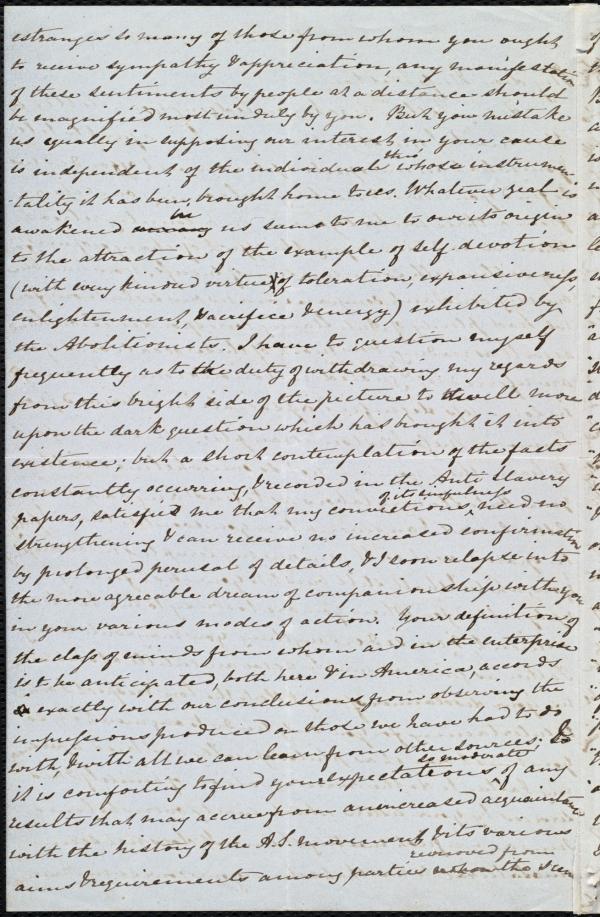 estranges so many of those from whom you ought
to receive sympathy & appreciation, any manifestation
of these sentiments by people at a distance should
be magnified most unduly by you. But you mistake
us equally in supposing our interest in your cause
is independent of the individuals thro' whose instrumen-
-tality it has been brought home to us. Whatever zeal is
awakened in us seems to me to owe its origin
to the attraction of the example of self-devotion
(with every kindred virtue of toleration, expansiveness,
enlightenment, sacrifice & energy) exhibited by
the Abolitionists. I have to question myself
frequently as to the duty of withdrawing my regards
from this bright side of the picture to dwell more
upon the dark question which has brought it into
existence; but a short contemplation of the facts
constantly occurring, & recorded in the Anti Slavery
papers, satisfies me that my convictions of its sinfulness, need no
strengthening & can receive no increased confirmation
by prolonged perusal of details, & I soon relapse into
the more agreeable dream of companionship with you
in your various modes of action. Your definition of
the class of minds from whom aid in the enterprise
is to be anticipated, both here & in America, accords
exactly with our conclusions from observing the
impressions produced on those we have had to do
with, & with all we can learn from other sources; &
it is comforting to find your expectations so moderate of any
results that may accrue from an increased acquaintance
with the history of the A.S. movement & its various
aims & requirements among parties removed from